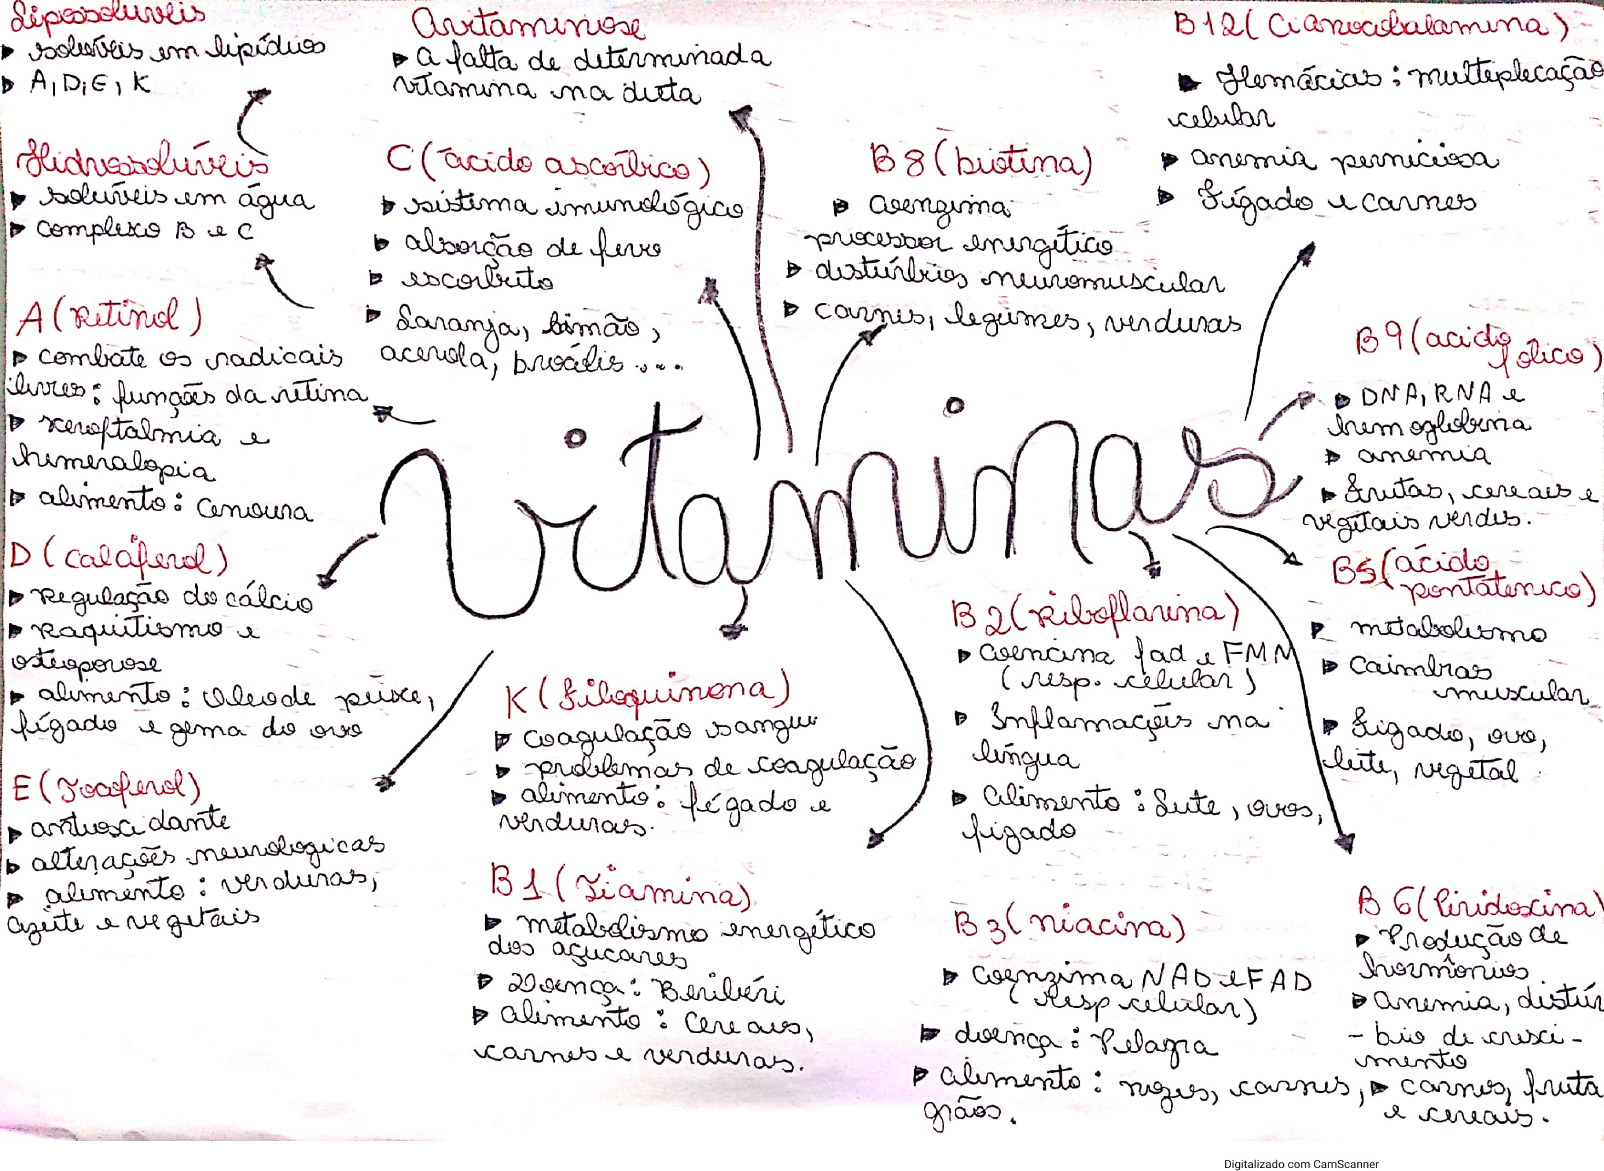 Lipossoluvéis
solúvéis em lipídios
A, D, E, K
Hidrossolúveis
solúvéis em água
complexo B e C
A (Retinol)
combate os radicais
livres: funções da retina
xeroftalmia e
himeralopia
alimento: Cenoura
D (Calaferol)
Regulação do cálcio
Raquitismo e
osteoporose
alimento: Óleo de peixe,
fígado e gema do ovo
E (Tocoferol)
antioxidante
alterações neurologicas
alimento: verduras,
azeite e vegetais
Avitaminose
A falta de determinada
vitamina na dieta
C (ácido ascórbico)
sistema imunológico
absorção de ferro
escorbuto
Laranja, limão,
acerola, brócolis ....
vitaminas
K (Filoquinona)
coagulação sangue
problemas de coagulação
alimento: fígado e
verduras.
B1 (Tiamina)
metabolismo energético
dos açucares
Doença: Beribéri
alimento: Cereais,
carnes e verduras.
B8 (biotina)
coenzima
processor energético
distúrbios neuromuscular
carnes, legumes, verduras
B12 (Cianocobalamina)
Hemácias: multeplicação
celular
anemia perniciosa
Fígado e carnes
B9 (acido
fólico)
DNA, RNA e
hemoglobina
anemia
Frutas, cereais e
vegetais verdes.
B5 (ácido
pontatenico)
metabolismo
Caimbras
muscular
Fígado, ovo,
leite, vegetal
B2 (Riboflavina)
Coencina fad e FMN
(resp. celular)
Inflamações na
língua
Alimento: Leite, ovos,
fígado
B3 (niacina)
Coenzima NAD e FAD
(resp celular)
doença: Pelagra
alimento: nozes, carnes,
grãos.
B6 (Piridoxina)
Produção de
hormônios
anemia, distúr
- bio de cresci-
mento
carnes, fruta
e cereais.
Digitalizado com CamScanner